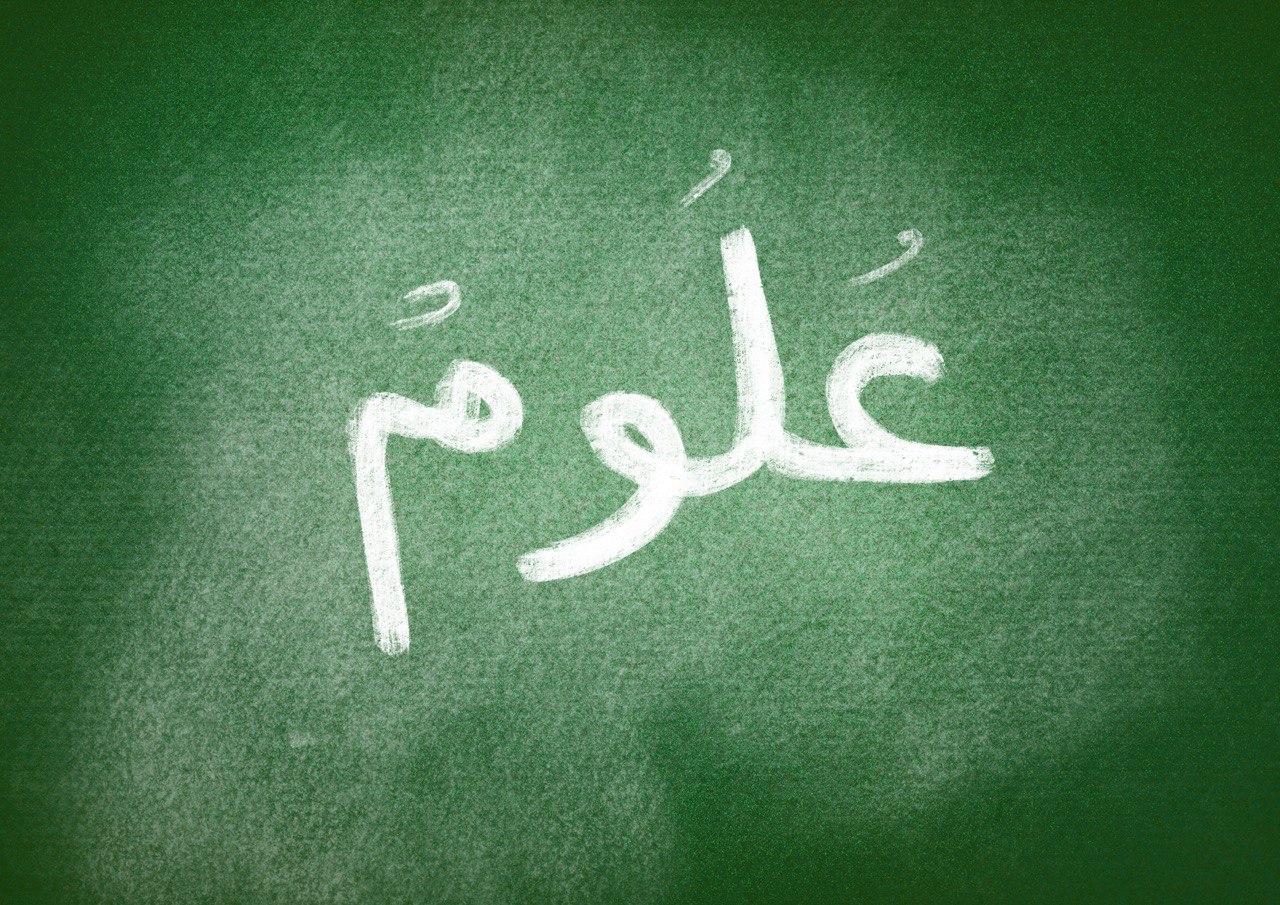 عُلُومٌ